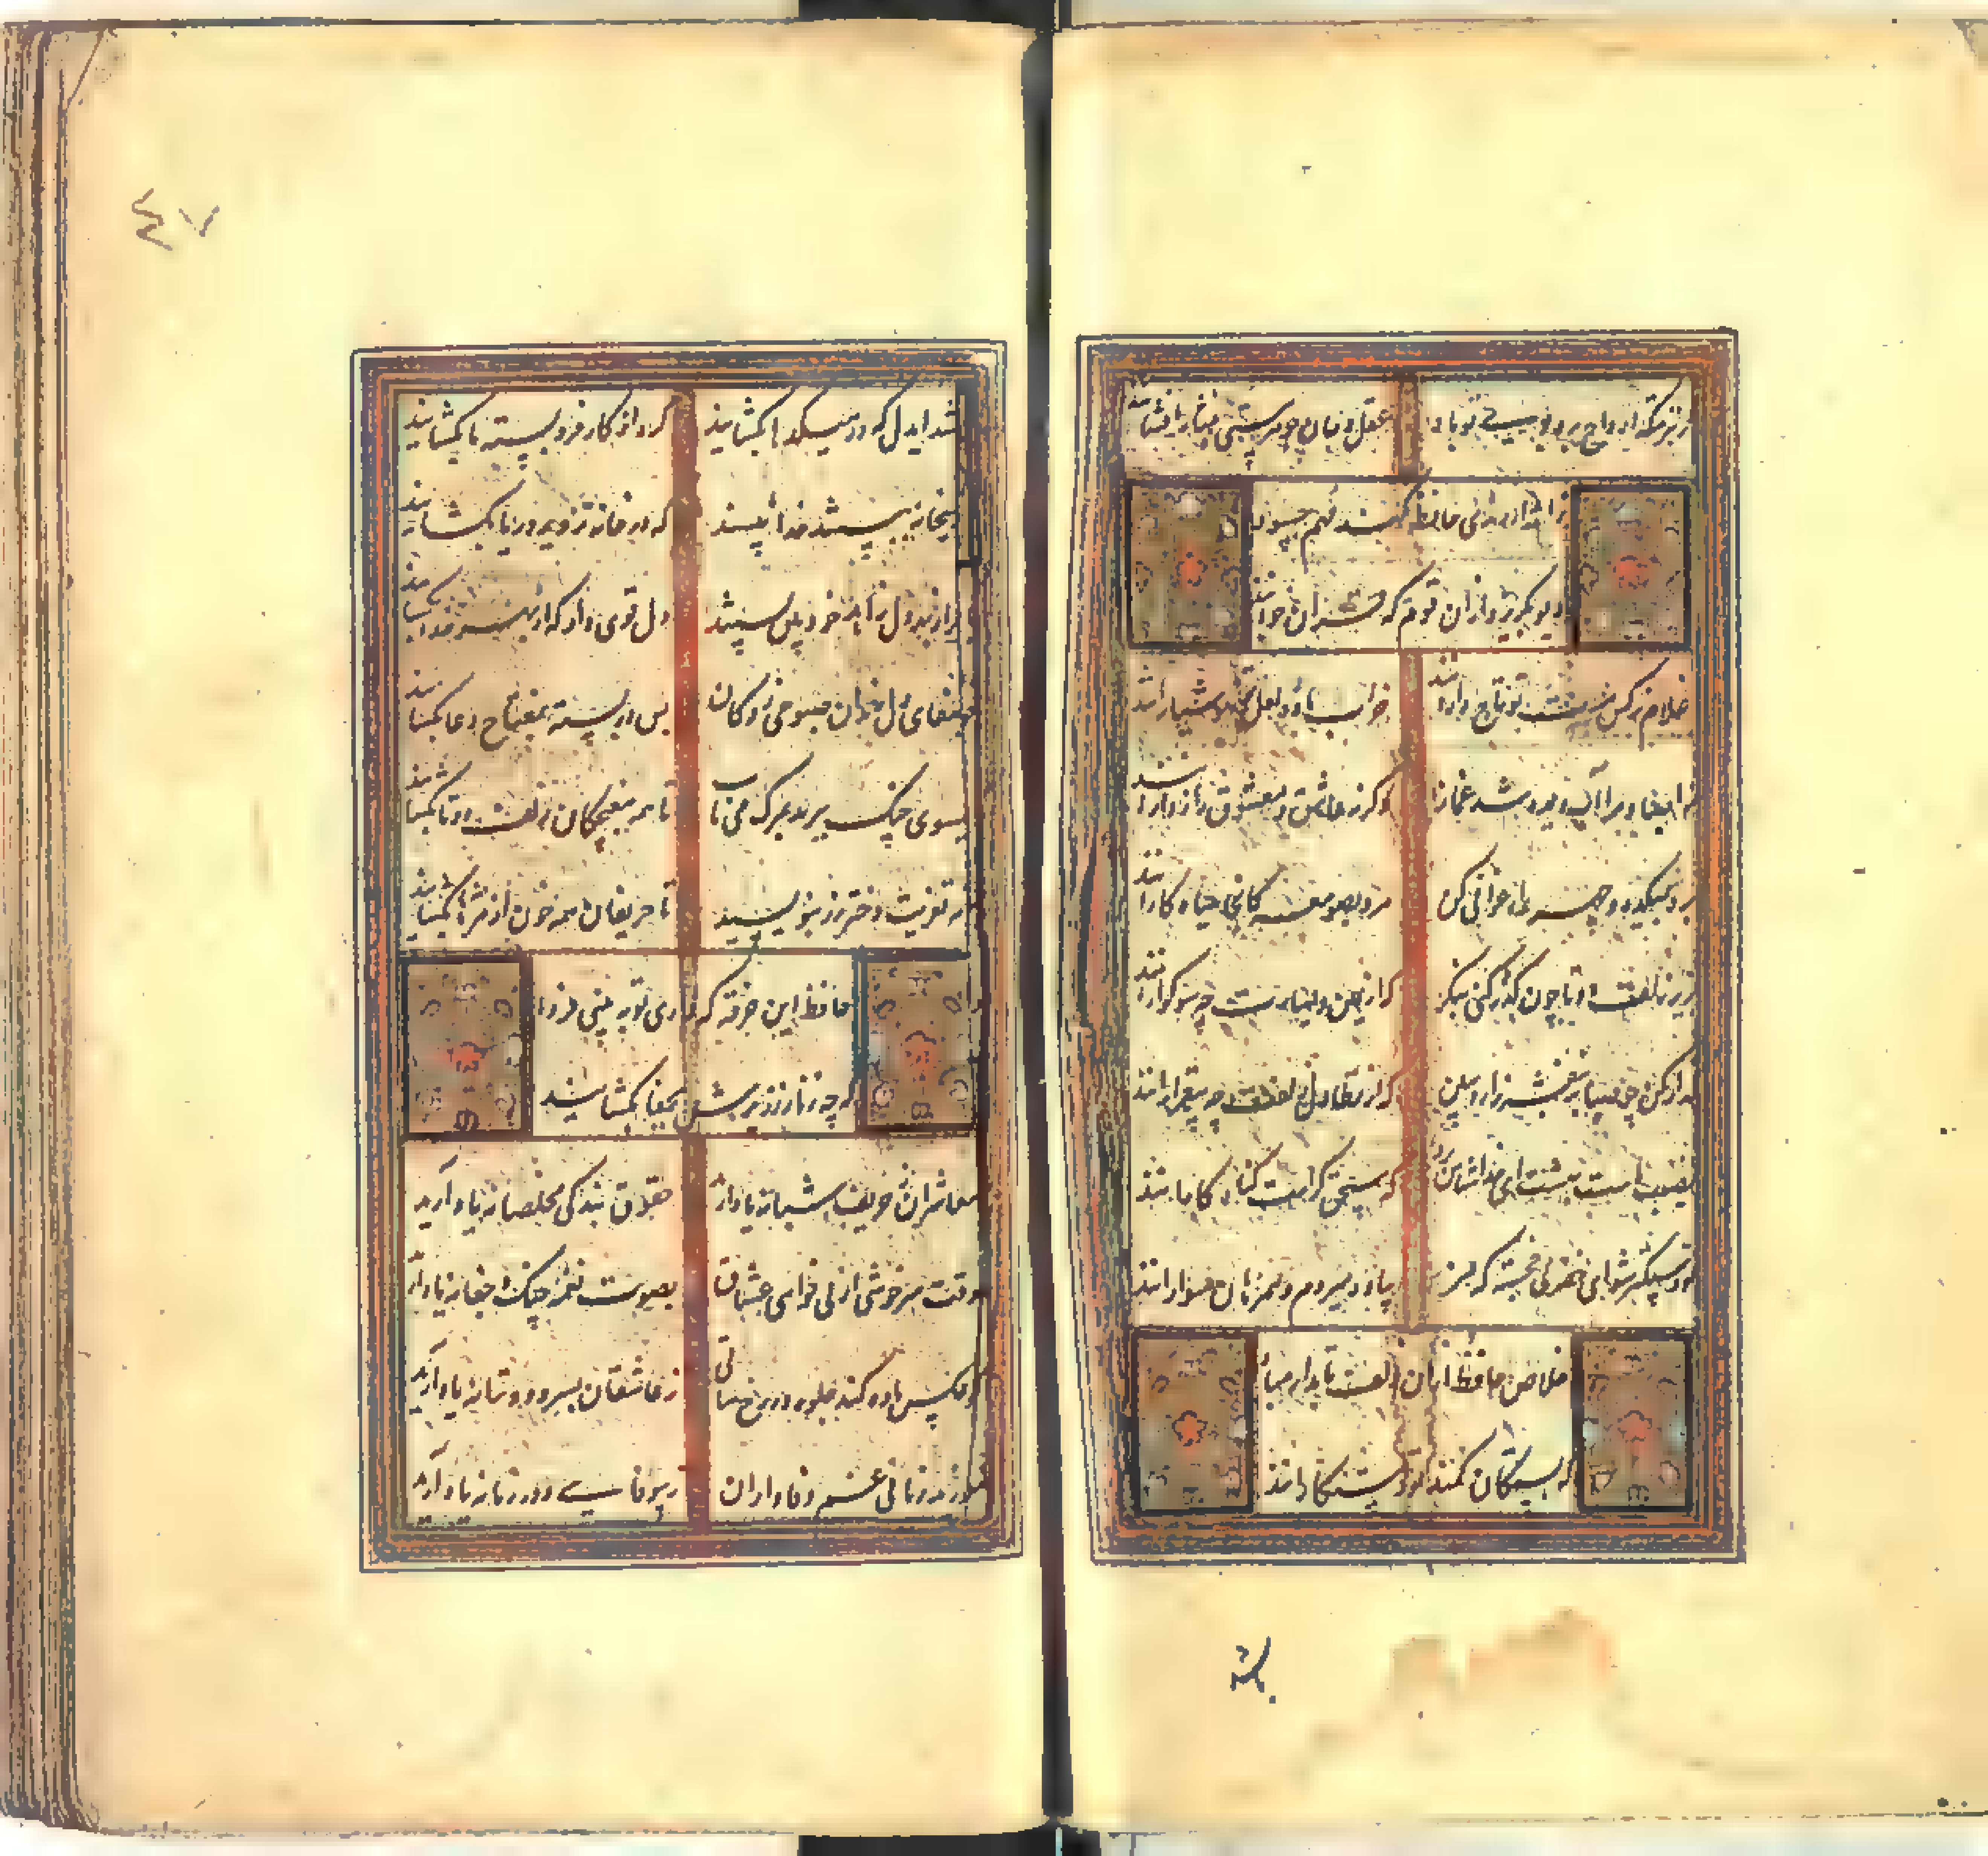 گر بنزهتگه ارواح برد بوی تو باد عقل و جان جوهر هستی بنثار افشانند
زاهد ار رندی حافظ نکند فهم چه شود
دیو بگریزد از آن قوم که قرآن خوانند
غلام نرکس مست تو تاجدارانند خراب باده لعل تو هوشیارانند
ترا صبا و مرا آب دیده شد غماز و کرنه عاشق و معشوق رازدارانند
برو بمیکده و چهره ارغوانی کن مرو بصومعه کانجا سیاه کارانند
بزیر زلف دوتا چون کذر کنی بنکر که از یمین و یسارت چه سوکوارانند
گذار کن چو صبا بر بنفشه زار و ببین که از تطاول زلفت چه بیقرارانند
نصیب ماست بهشت ای خداشناس برو که مستحق کرامت کناه کارانند
تو دستکیر شو ای خضر پی خجسته که من پیاده میروم و همرهان سوارانند
خلاص حافظ از آن زلف تابدار مباد
که بستکان کمند تو رستکارانند
باشد
٤٧
باشد ای دل که در میکدها بکشایند کره از کار فروبسته ما بکشایند
در میخانه ببستند خدایا مپسند که در خانه تزویر و ریا بکشایند
اگر از بهر دل زاهد خودبین بستند دل قوی دار که از بهر خدا بکشایند
بصفای دل رندان صبوحی زدکان بس در بسته بمفتاح دعا بکشایند
کیسوی چنک ببرید بمرک می ناب تا همه مغبچکان زلف دوتا بکشایند
نامه تعزیت دختر رز بنویسید تا حریفان همه خون از مژها بکشایند
حافظ این خرقه که داری تو ببینی فردا
که چه زنار ز زیرش بجفا بکشایند
معاشران ز حریف شبانه یاد آرید حقوق بندکی مخلصانه یاد آرید
بوقت سرخوشی از آه و ناله عشاق بصوت نغمه چنک و چغانه یاد آرید
چو عکس باده کند جلوه در رخ ساقی ز عاشقان بسرود و ترانه یاد آرید
نمیخورید زمانی غم وفاداران ز بیوفایی دور زمانه یاد آرید